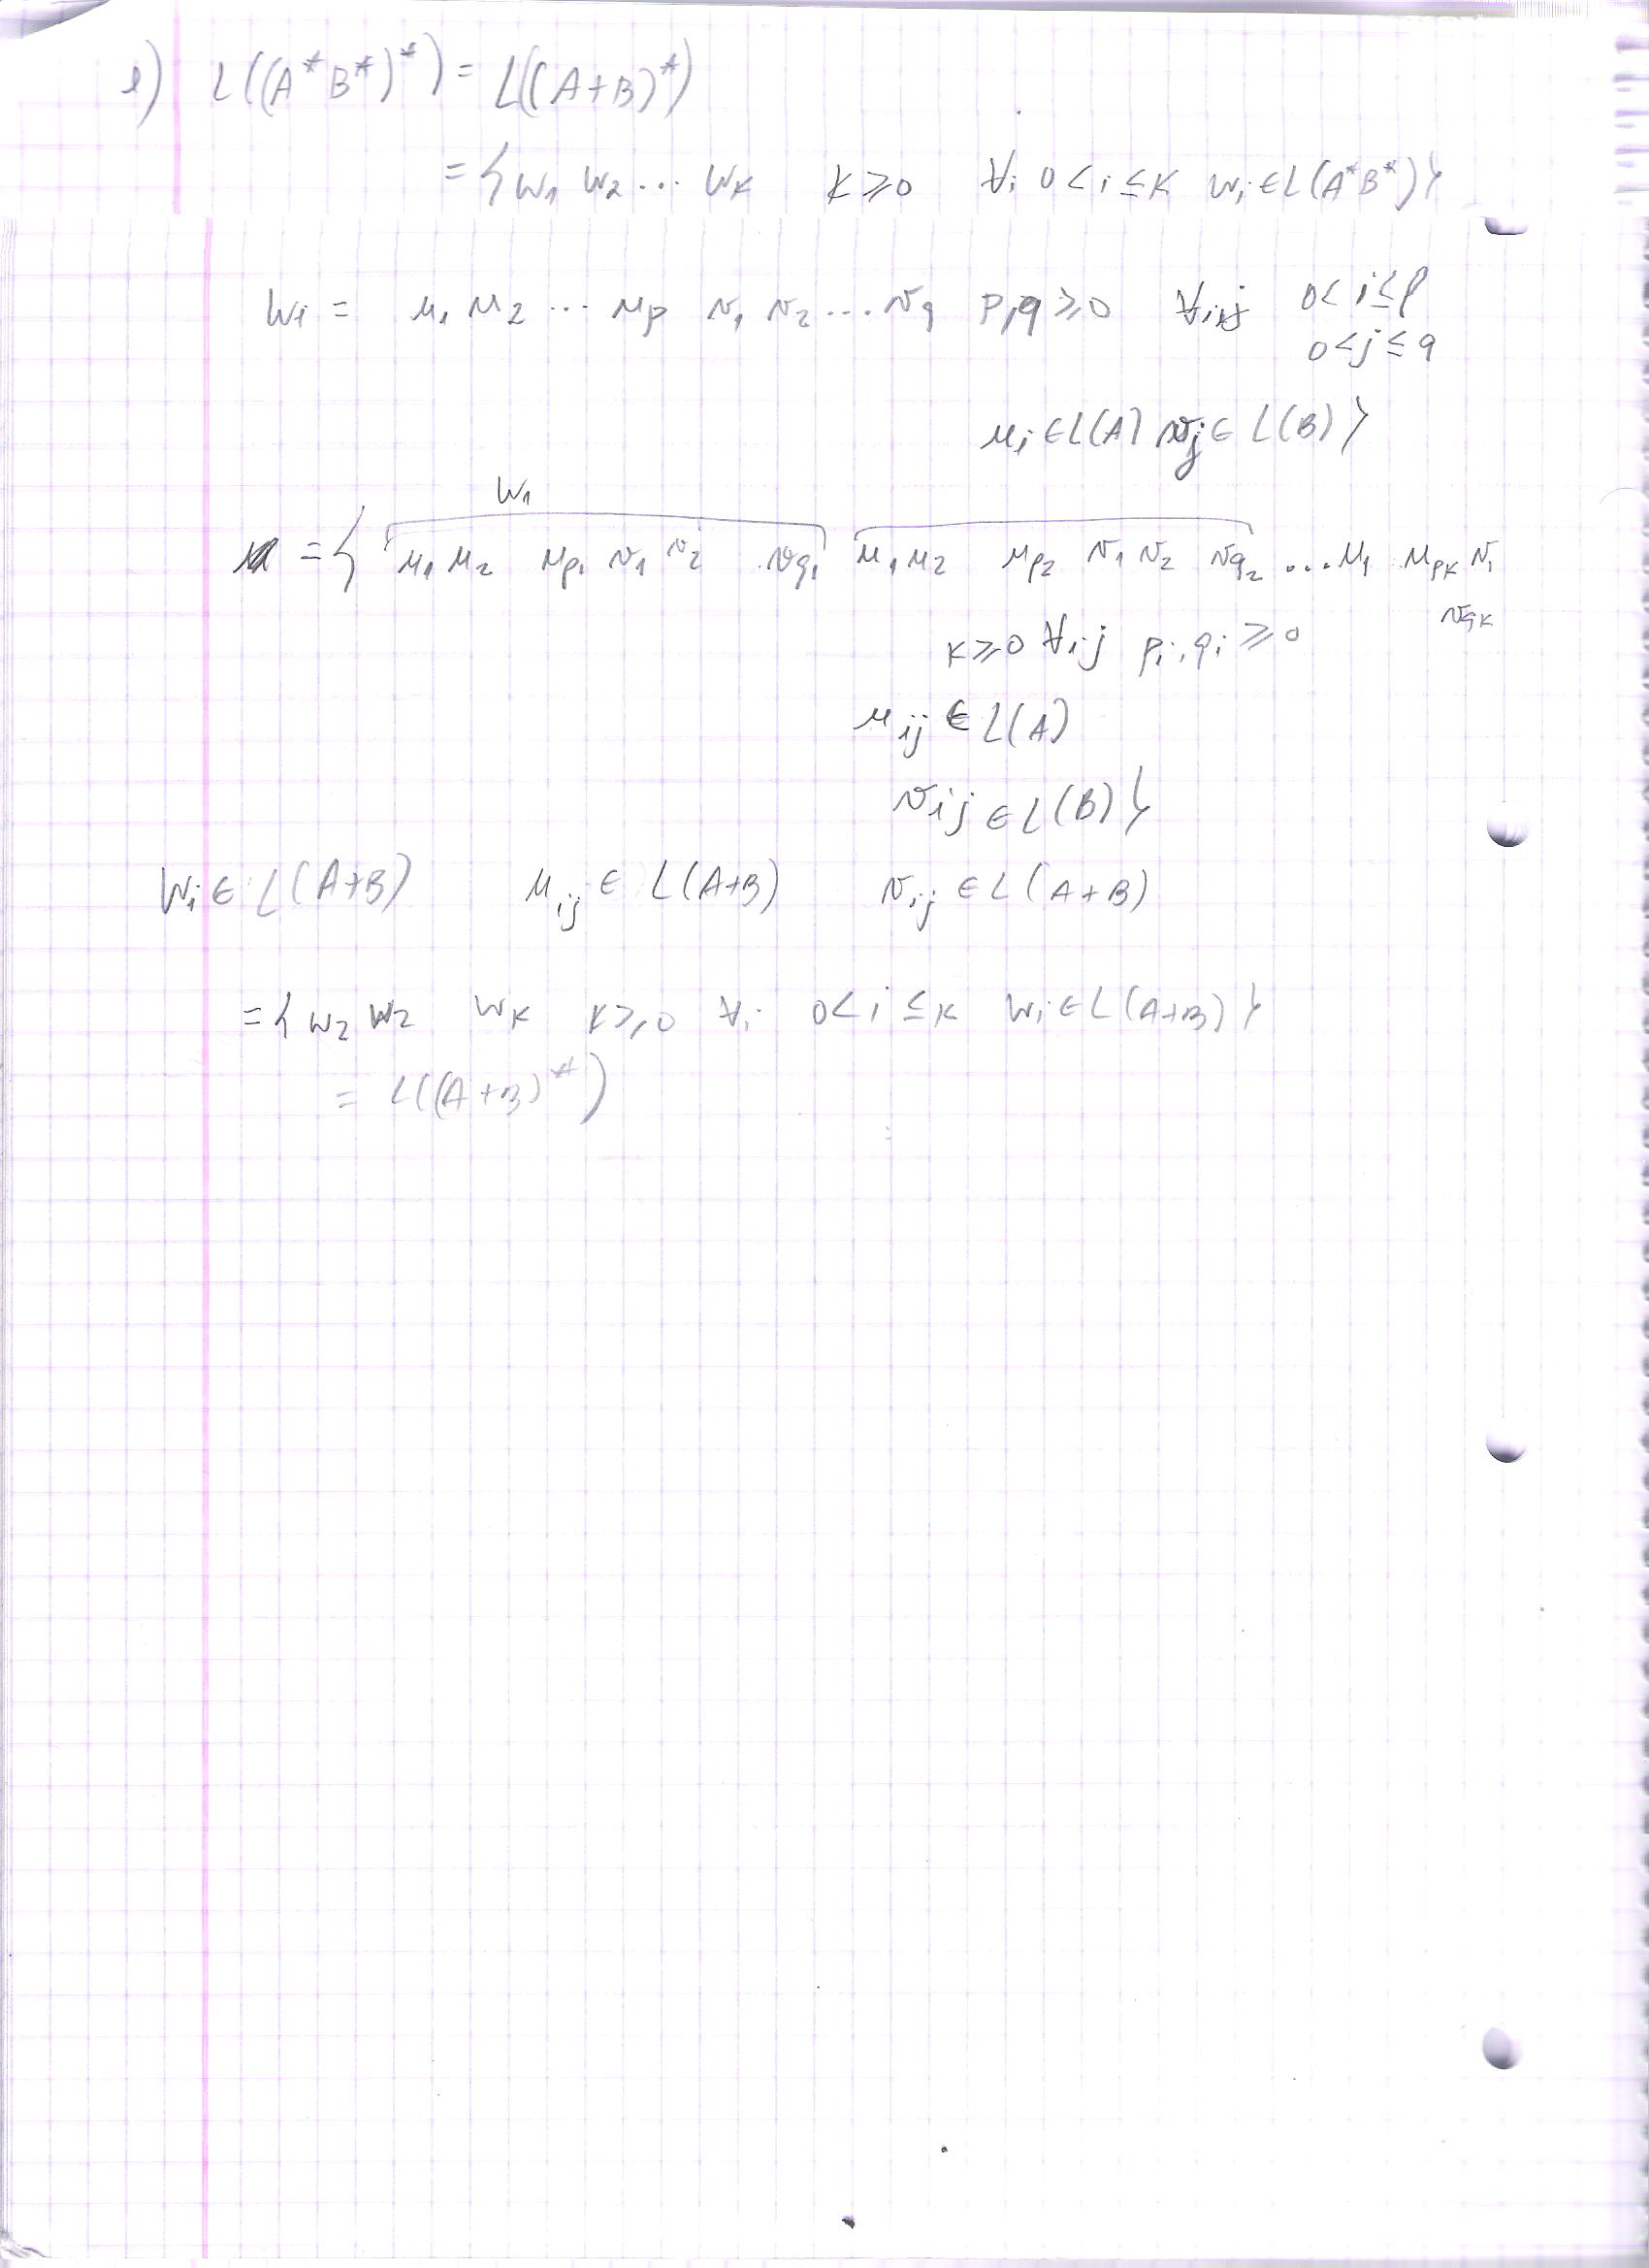 e) L((A*B*)*) = L((A+B)*)
= { w₁ w₂ ... wₖ K ⩾ 0 ∀i 0 < i ≤ K wᵢ ∈ L(A*B*) }
Wi = u₁ u₂ ... up v₁ v₂ ... vq p,q ⩾ 0 ∀i,j 0 < i ≤ p
0 < j ≤ q
uᵢ ∈ L(A) vj ∈ L(B) }
W₁
= { u₁ u₂ up₁ v₁ v₂ vq₁ u₁ u₂ up₂ v₁ v₂ vq₂ ... u₁ upₖ v₁
vqₖ
K ⩾ 0 ∀ij pᵢ, qᵢ ⩾ 0
uij ∈ L(A)
vij ∈ L(B) }
Wi ∈ L(A+B) uij ∈ L(A+B) vij ∈ L(A+B)
= { w₂ w₂ wₖ K ⩾ 0 ∀i 0 < i ≤ K wi ∈ L(A+B) }
= L((A+B)*)